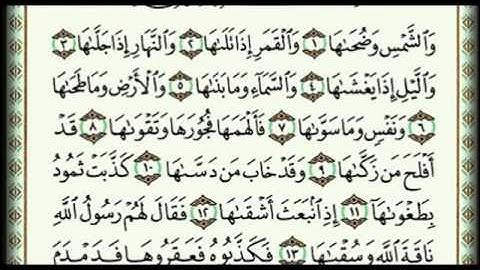 وَالشَّمْسِ وَضُحَىٰهَا ١ وَالْقَمَرِ إِذَا تَلَىٰهَا ٢ وَالنَّهَارِ إِذَا جَلَّىٰهَا ٣
وَاللَّيْلِ إِذَا يَغْشَىٰهَا ٤ وَالسَّمَاءِ وَمَا بَنَىٰهَا ٥ وَالْأَرْضِ وَمَا طَحَىٰهَا
٦ وَنَفْسٍ وَمَا سَوَّىٰهَا ٧ فَأَلْهَمَهَا فُجُورَهَا وَتَقْوَىٰهَا ٨ قَدْ
أَفْلَحَ مَن زَكَّىٰهَا ٩ وَقَدْ خَابَ مَن دَسَّىٰهَا ١٠ كَذَّبَتْ ثَمُودُ
بِطَغْوَىٰهَا ١١ إِذِ انۢبَعَثَ أَشْقَىٰهَا ١٢ فَقَالَ لَهُمْ رَسُولُ اللَّهِ
نَاقَةَ اللَّهِ وَسُقْيَٰهَا ١٣ فَكَذَّبُوهُ فَعَقَرُوهَا فَدَمْدَمَ